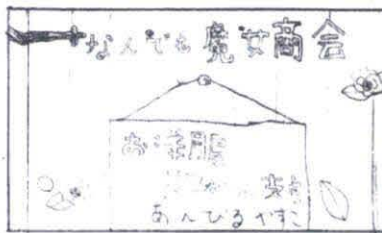 なんでも魔女商会
お洋服
支
あんびるやすこ